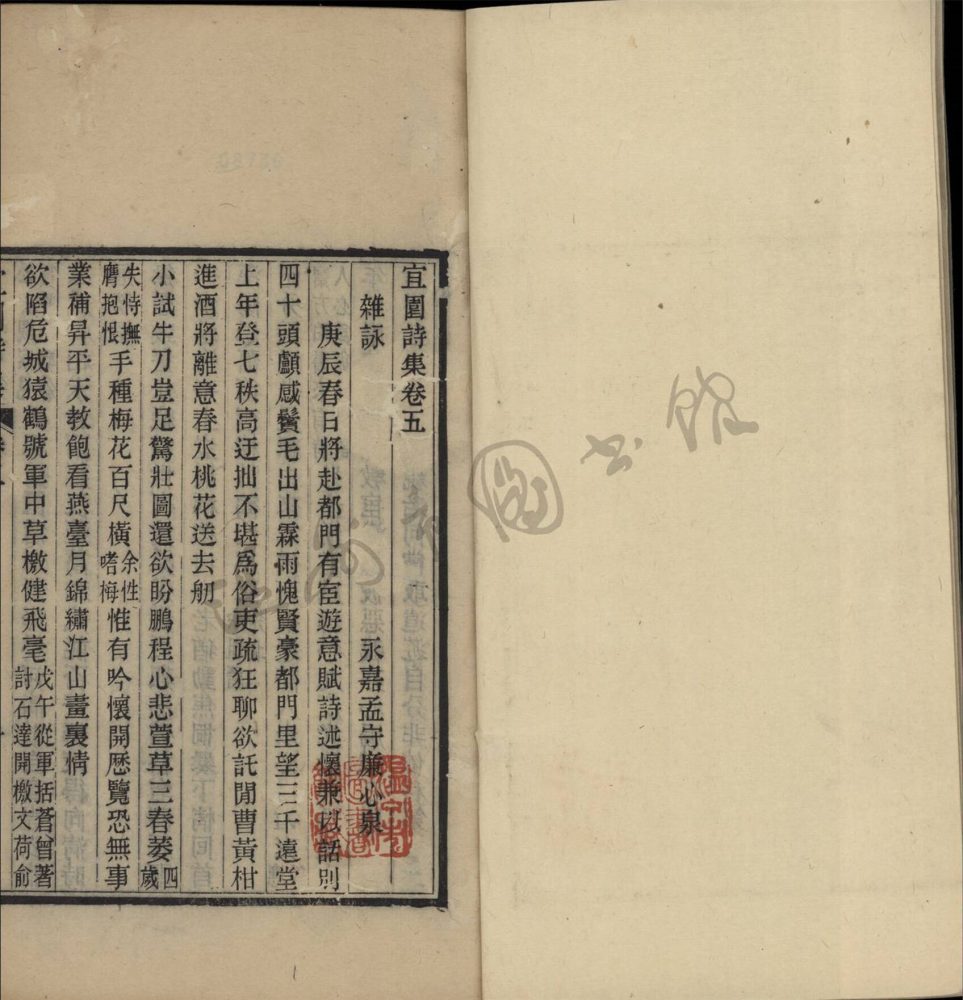 宜園詩集卷五
雜詠
永嘉孟守廉心泉
庚辰春日將赴都門有宦遊意賦詩述懷兼以話別
四十頭顱感鬢毛出山霖雨愧賢豪都門里望三千遠堂
上年登七秩高迂拙不堪為俗吏疏狂聊欲託閒曹黃柑
進酒將離意春水桃花送去舠
小試牛刀豈足驚壯圖還欲盼鵬程心悲萱草三春萎四歲
失恃撫膺抱恨手種梅花百尺橫余性嗜梅惟有吟懷開歷覽恐無事
業補昇平天教飽看燕臺月錦繡江山畫裏情
欲陷危城猿鶴號軍中草檄健飛毫戊午從軍括蒼曾著
討石達開檄文荷俞
圖書館